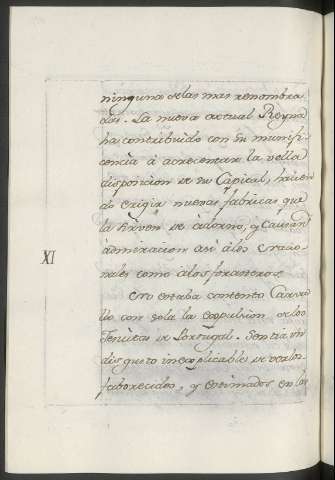 ninguna de las mas renombra
das. La nueva actual Reyna
ha contribuido con su munifi
cencia á acrecentar la vella
disposicion de su Capital, hacien
do erigir nuevas fabricas que
la sirven de adorno, y causan
admiracion asi álos
nales como álos forasteros.
XI
No estaba contento Carva
llo con sola la expulsion de los
Jesuitas de Portugal. Sentia un
disgusto inexplicable de verlos
faborecidos, y estimados en las